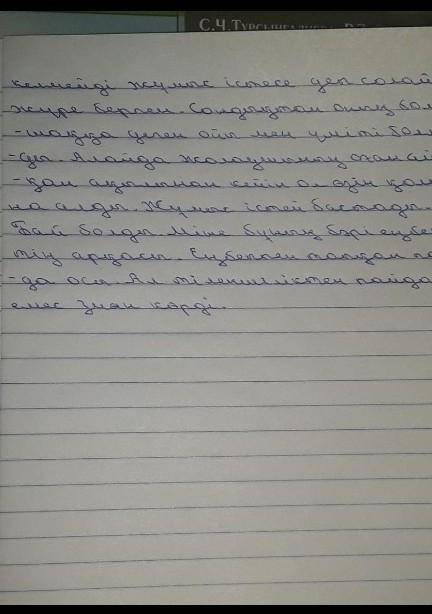 С.Ч.Тұрсынғалиева
келмейді жұмыс істесе деп солай
жүре берген. Сондықтан оның бол
-шаққа деген ойы мен үміті бол
-ды. Алайда жолаушының оған ай
-қан ақылынан кейін ол өзін қол
на алды. Жұмыс істей бастады.
Бай болды. Міне бұның бәрі еңбек
тің арқасы. Еңбекпен тапқан па
-да осы. Ал тіленшіліктен пайда
емес зиян көрді.